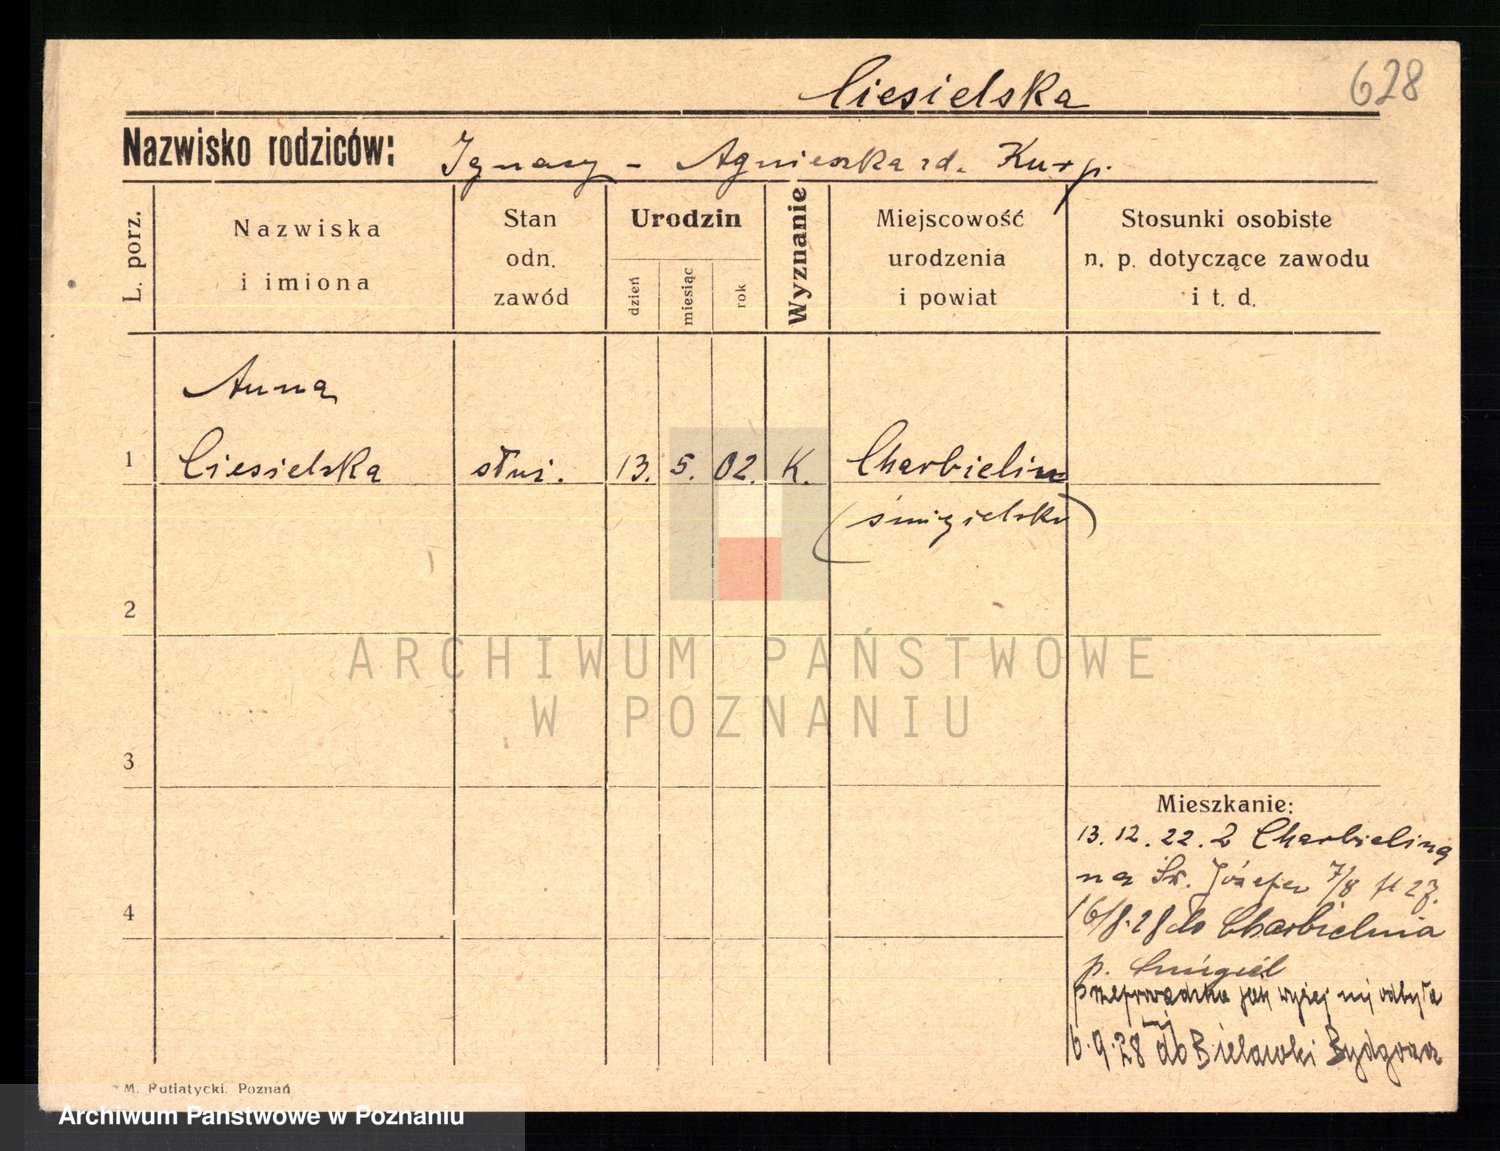 Ciesielska 628
Nazwisko rodziców: Ignacy - Agnieszka rd. Kurp.
L. porz.
Nazwiska
i imiona
Stan
odn.
zawód
Urodzin
dzień
miesiąc
rok
Wyznanie
Miejscowość
urodzenia
i powiat
Stosunki osobiste
n. p. dotyczące zawodu
i t. d.
Anna
1 Ciesielska służ. 13. 5. 02. K. Charbielin
(śmigielski)
2
ARCHIWUM PAŃSTWOWE
W POZNANIU
3
Mieszkanie:
13.12.22. z Charbielina
na Św. Józefa 7/8 27.
4
16/8.28 do Charbielnia
p. Śmigiel
przeprowadzka jak wyżej nie odbyła
się
6.9.28 do Bielawki Bydgoszcz
M. Putiatycki. Poznań
Archiwum Państwowe w Poznaniu